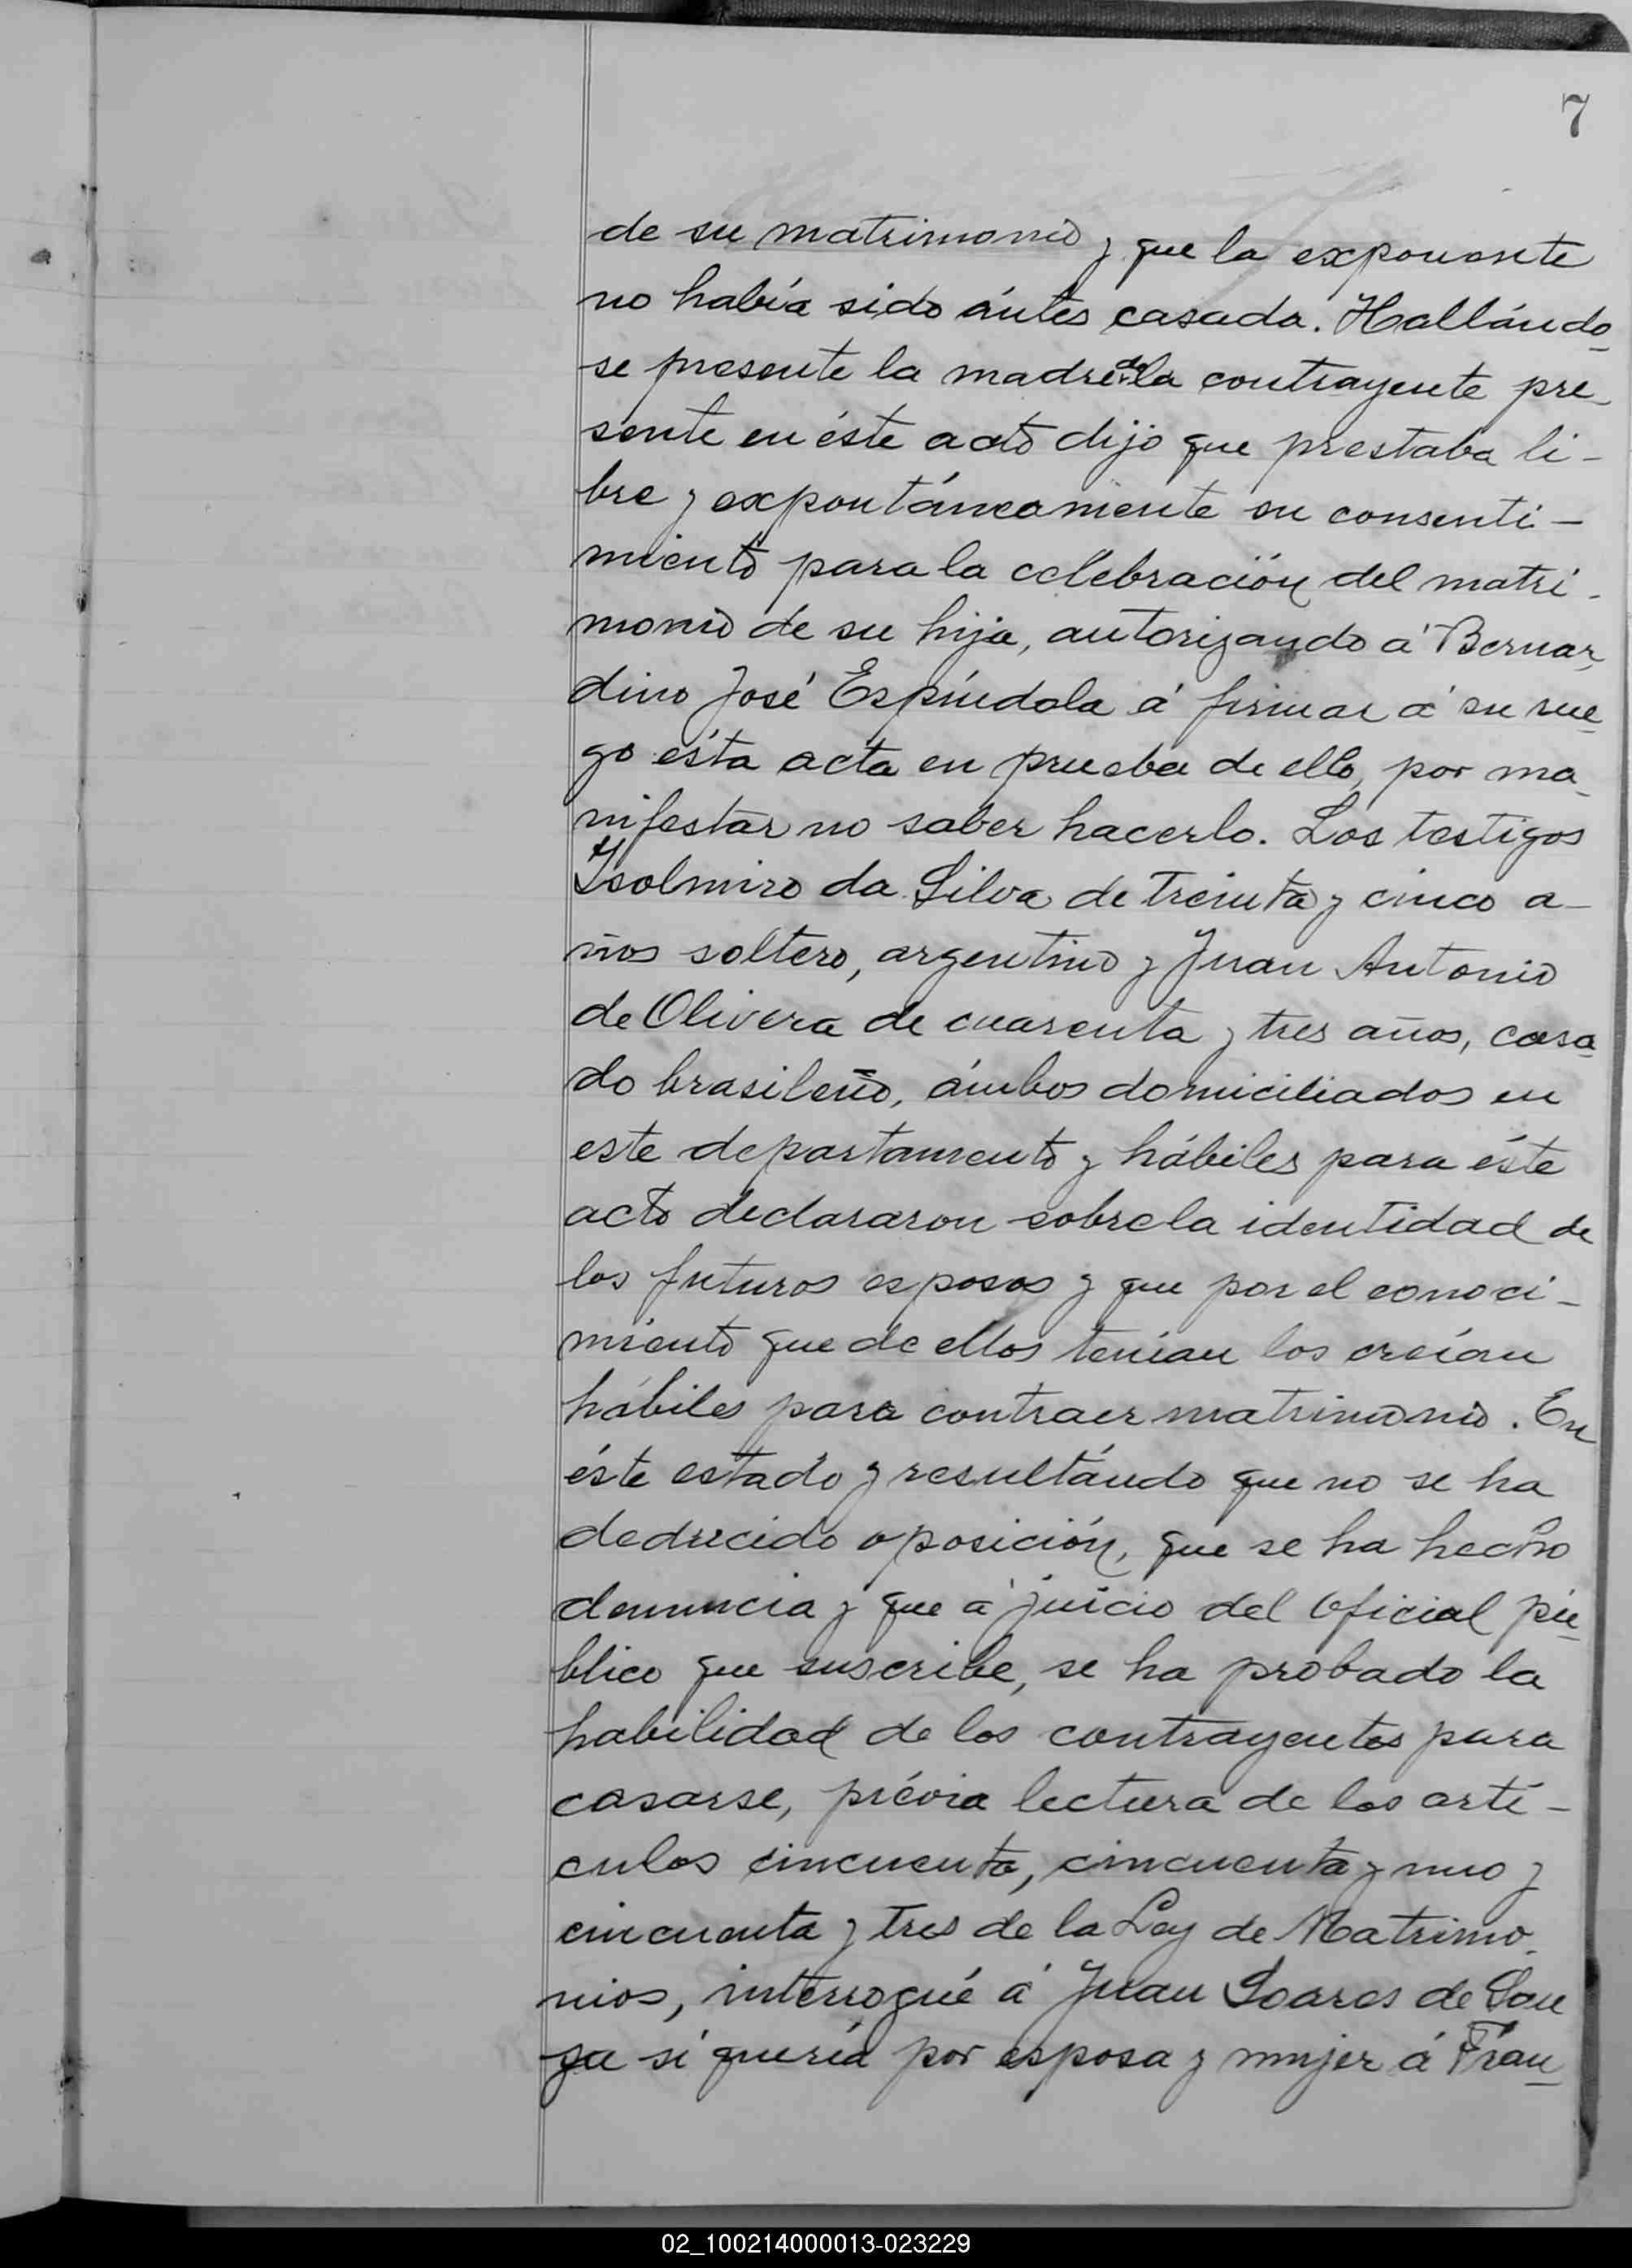 7
de su matrimonio y que la exponente
no había sido ántes casada. Hallándo-
se presente la madre de la contrayente pre-
sente en éste acto dijo que prestaba li-
bre y expontáneamente su consenti-
miento para la celebración del matri-
monio de su hija, autorizando á Bernar-
dino José Espíndola á firmar á su rue-
go ésta acta en prueba de ello, por ma-
nifestar no saber hacerlo. Los testigos
Ysolmiro da Silva de treinta y cinco a-
ños soltero, argentino y Juan Antonio
de Olivera de cuarenta y tres años, casa-
do brasileño, ámbos domiciliados en
este departamento y hábiles para éste
acto declararon sobre la identidad de
los futuros esposos y que por el conoci-
miento que de ellos tenían los creían
hábiles para contraer matrimonio. En
éste estado y resultándo que no se ha
deducido oposición, que se ha hecho
denuncia y que á juicio del oficial pú-
blico que suscribe, se ha probado la
habilidad de los contrayentes para
casarse, prévia lectura de los artí-
culos cincuenta, cincuenta y uno y
cincuenta y tres de la Ley de Matrimo-
nios, interrogué á Juan Soares de Sou
za si quería por esposa y mujer á Fran-
02_100214000013-023229